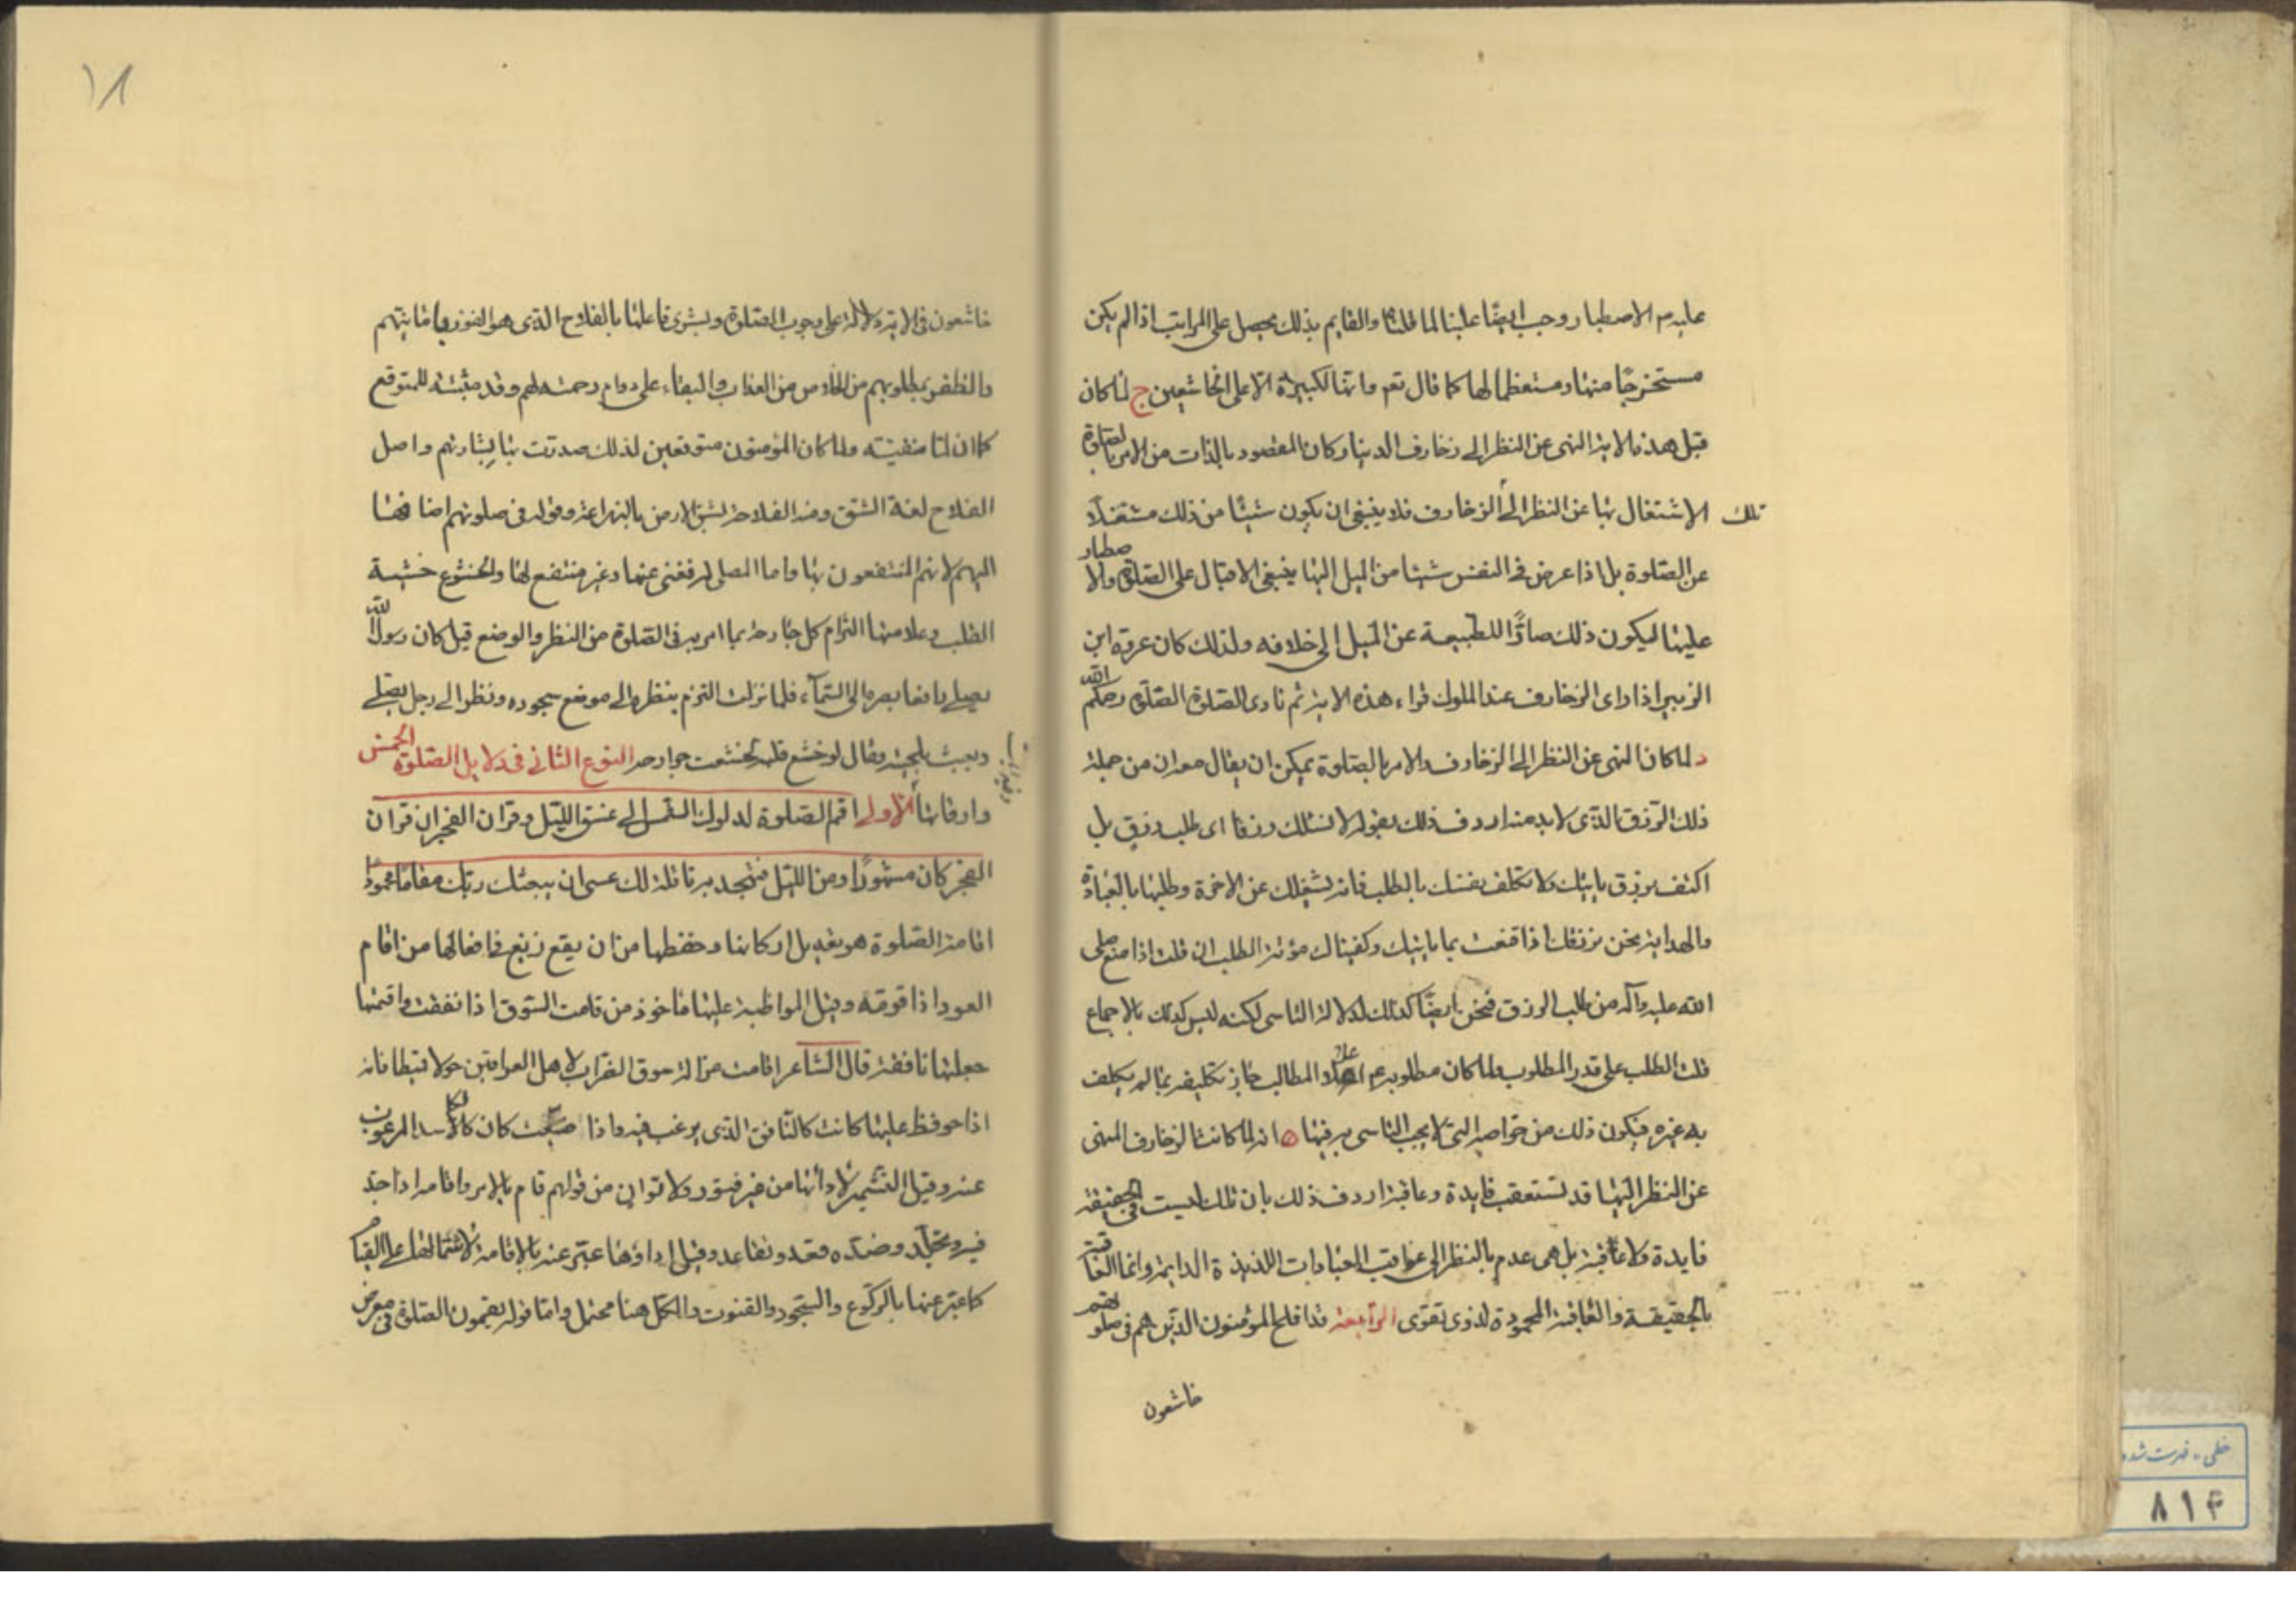 عليه م الاصطبار وجب ايضا علينا لما قلنا والقايم بذلك يحصل على المراتب اذا لم يكن
مستخرجا منها ومستعظما لها كما قال تعم وانها لكبيرة الا على الخاشعين ج لما كان
قبل هذه الاية النهى عن النظر الى زخارف الدنيا وكان المقصود بالذات من الامر بالصلوة
تلك الاشتغال بها عن النظر الى الزخارف فلا ينبغى ان يكون شيئا من ذلك مشتغلا
عن الصلوة بل اذا عرض فى النفس شيئا من الميل اليها ينبغى الاقبال على الصلوة والاصطبار
عليها ليكون ذلك صادا للطبيعة عن الميل الى خلافه ولذلك كان عروة ابن
الزبير اذا راى الزخارف عند الملوك قراء هذه الاية ثم نادى الصلوة الصلوة رحمكم الله
د لما كان النهى عن النظر الى الزخارف والامر بالصلوة يمكن ان يقال معه ان من جملة
ذلك الرزق الذى لا بد منه اردف ذلك بقوله لا نسئلك رزقا اى طلب رزق بل
اكتف برزق ياتيك ولا تكلف نفسك بالطلب فانه يشغلك عن الاخرة وطلبها بالعبادة
والهداية نحن نرزقك اذا قنعت بما ياتيك وكفيناك مؤنة الطلب ان قلت اذا منع صلى
الله عليه وآله من طلب الرزق فنحن ايضا كذلك لدلالة التاسى لكنه ليس كذلك بالاجماع
قلت الطلب على قدر المطلوب ولما كان مطلوبه م اعلا المطالب جاز تكليفه بما لم يكلف
به غيره فيكون ذلك من خواصه التى لا يجب التاسى به فيها ه انه لما كانت الزخارف المنهى
عن النظر اليها قد تستعقب فايدة وعاقبة اردف ذلك بان تلك ليست فى الحقيقة
فايدة ولا عاقبة بل هى عدم بالنظر الى عواقب العبادات اللذيذة الدايمة وانما العاقبة
بالحقيقة والعاقبة المحمودة لذوى تقوى الرابعة قد افلح المؤمنون الذين هم فى صلوتهم
خاشعون
١٨
خاشعون فى الاية دلالة على وجوب الصلوة وبشرى فاعلها بالفلاح الذى هو الفوز بامانيهم
والظفر بمطلوبهم من الخلاص من العذاب والبقاء على دوام رحمته لهم وقد مثبتة للمتوقع
كما ان لما منفيته ولما كان المؤمنون متوقعين لذلك صدرت بها بشارتهم واصل
الفلاح لغة الشق ومنه الفلاحة لشق الارض بالزراعة وقوله فى صلوتهم اضافها
اليهم لانهم المنتفعون بها واما المصلى له فغنى عنها وغير منتفع لها والخشوع خشية
القلب وعلامتها التزام كل جارحة بما امر به فى الصلوة من النظر والوضع قيل كان رسول الله
يصلى رافعا بصره الى السماء فلما نزلت التزم بنظره الى موضع سجوده ونظر الى رجل يصلى
ويعبث بلحيته وقال لو خشع قلبه لخشعت جوارحه النوع الثانى فى دلايل الصلوة الخمس
واوقاتها الاولى اقم الصلوة لدلوك الشمس الى غسق الليل وقران الفجر ان قران
الفجر كان مشهودا ومن الليل فتهجد به نافلة لك عسى ان يبعثك ربك مقاما محمودا
اقامة الصلوة هو تعديل اركانها وحفظها من ان يقع زيغ فى افعالها من اقام
العود اذا قومه وقيل المواظبة عليها ماخوذ من قامت السوق اذا نفقت واقمتها
جعلتها نافقة قال الشاعر اقامت غزالة سوق الضراب لاهل العراقين حولا قميطا فانه
اذا حوفظ عليها كانت كالنافق الذى يرغب فيه واذا ضيعت كان كالكاسد المرغوب
عنه وقيل التشمير لادائها من غير فتور ولا توان من قولهم قام بالامر واقامه اذا جد
فيه وتجلد وضده قعد وتقاعد وقيل اداؤها عبر عنه بالاقامة لاشتمالها على القيام
كما عبر عنها بالركوع والسجود والقنوت والكل هنا محتمل واما قوله يقيمون الصلوة فى معرض
خطى - فهرست شده
٨١۴